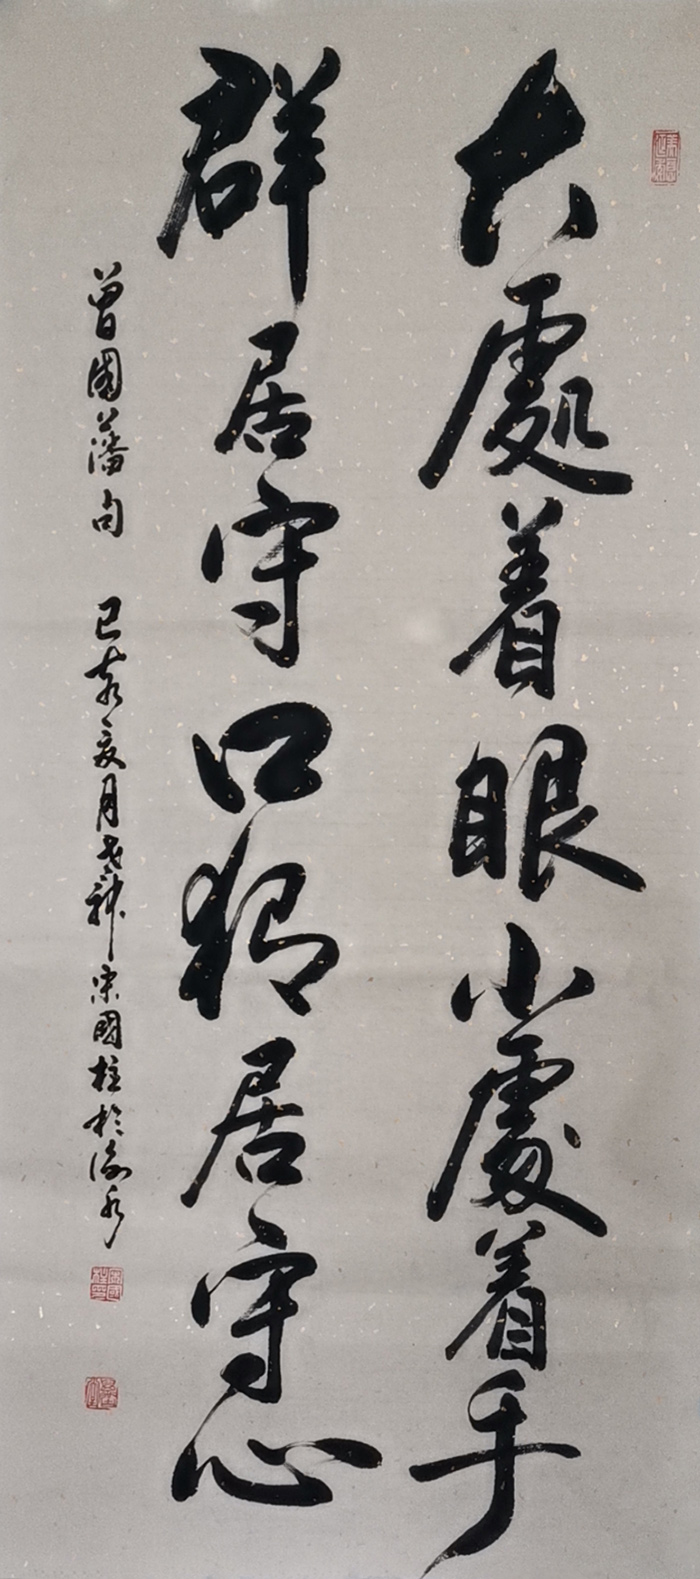 大處着眼小處着手
群居守口獨居守心
曾國藩句 己亥夏月宋國柱於渝水